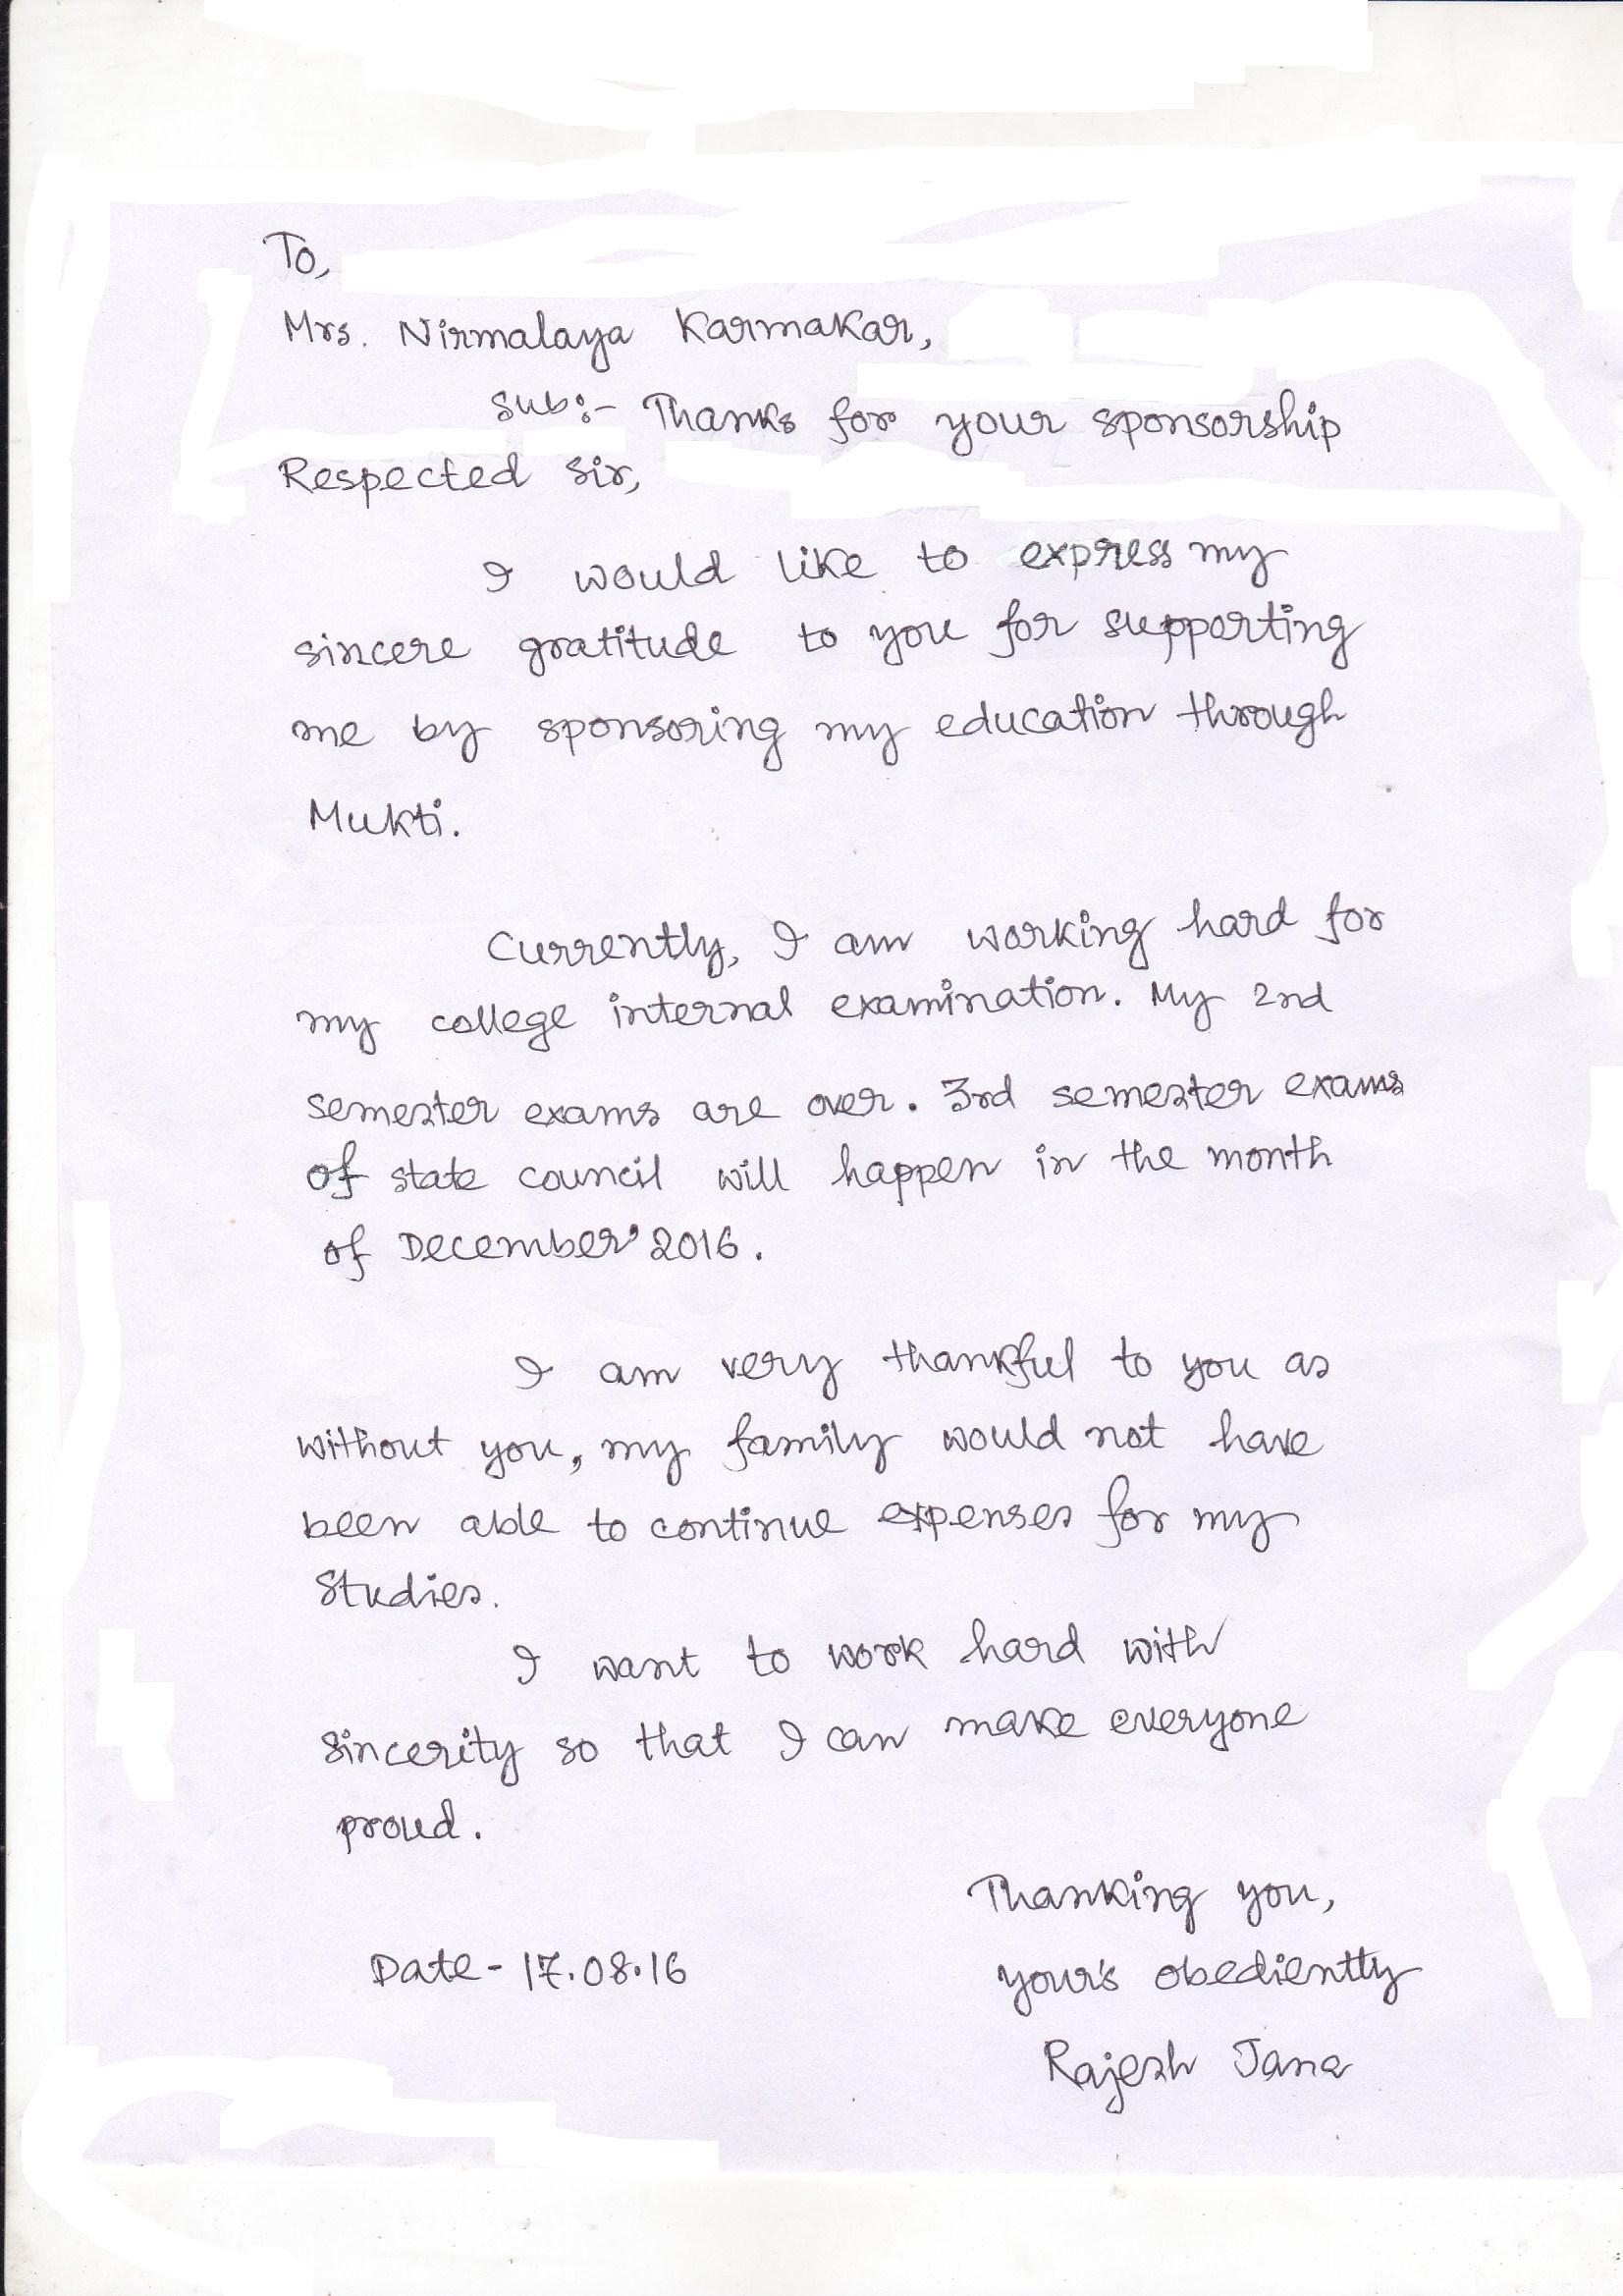 To,
Mrs. Nirmalaya Karmakar,
Sub:- Thanks for your sponsorship
Respected Sir,
I would like to express my
sincere gratitude to you for supporting
me by sponsoring my education through
Mukti.
Currently, I am working hard for
my college internal examination. My 2nd
semester exams are over. 3rd semester exams
of state council will happen in the month
of December'2016.
I am very thankful to you as
without you, my family would not have
been able to continue expenses for my
Studies.
I want to work hard with
sincerity so that I can make everyone
proud.
Thanking you,
Date- 17.08.16
your's obediently
Rajesh Jana